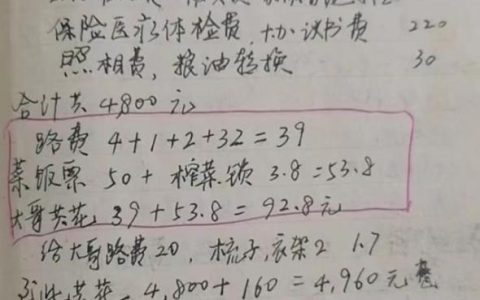 保险医疗体检费,协议书费 220
照相费,粮油转换 30
合计共 4800 元
路费 4+1+2+32=39
菜饭票 50+榨菜.锁 3.8=53.8
大哥共花 39+53.8=92.8元
给大哥路费20,梳子,衣架2 1.7
共花 4,800+160=4,960元